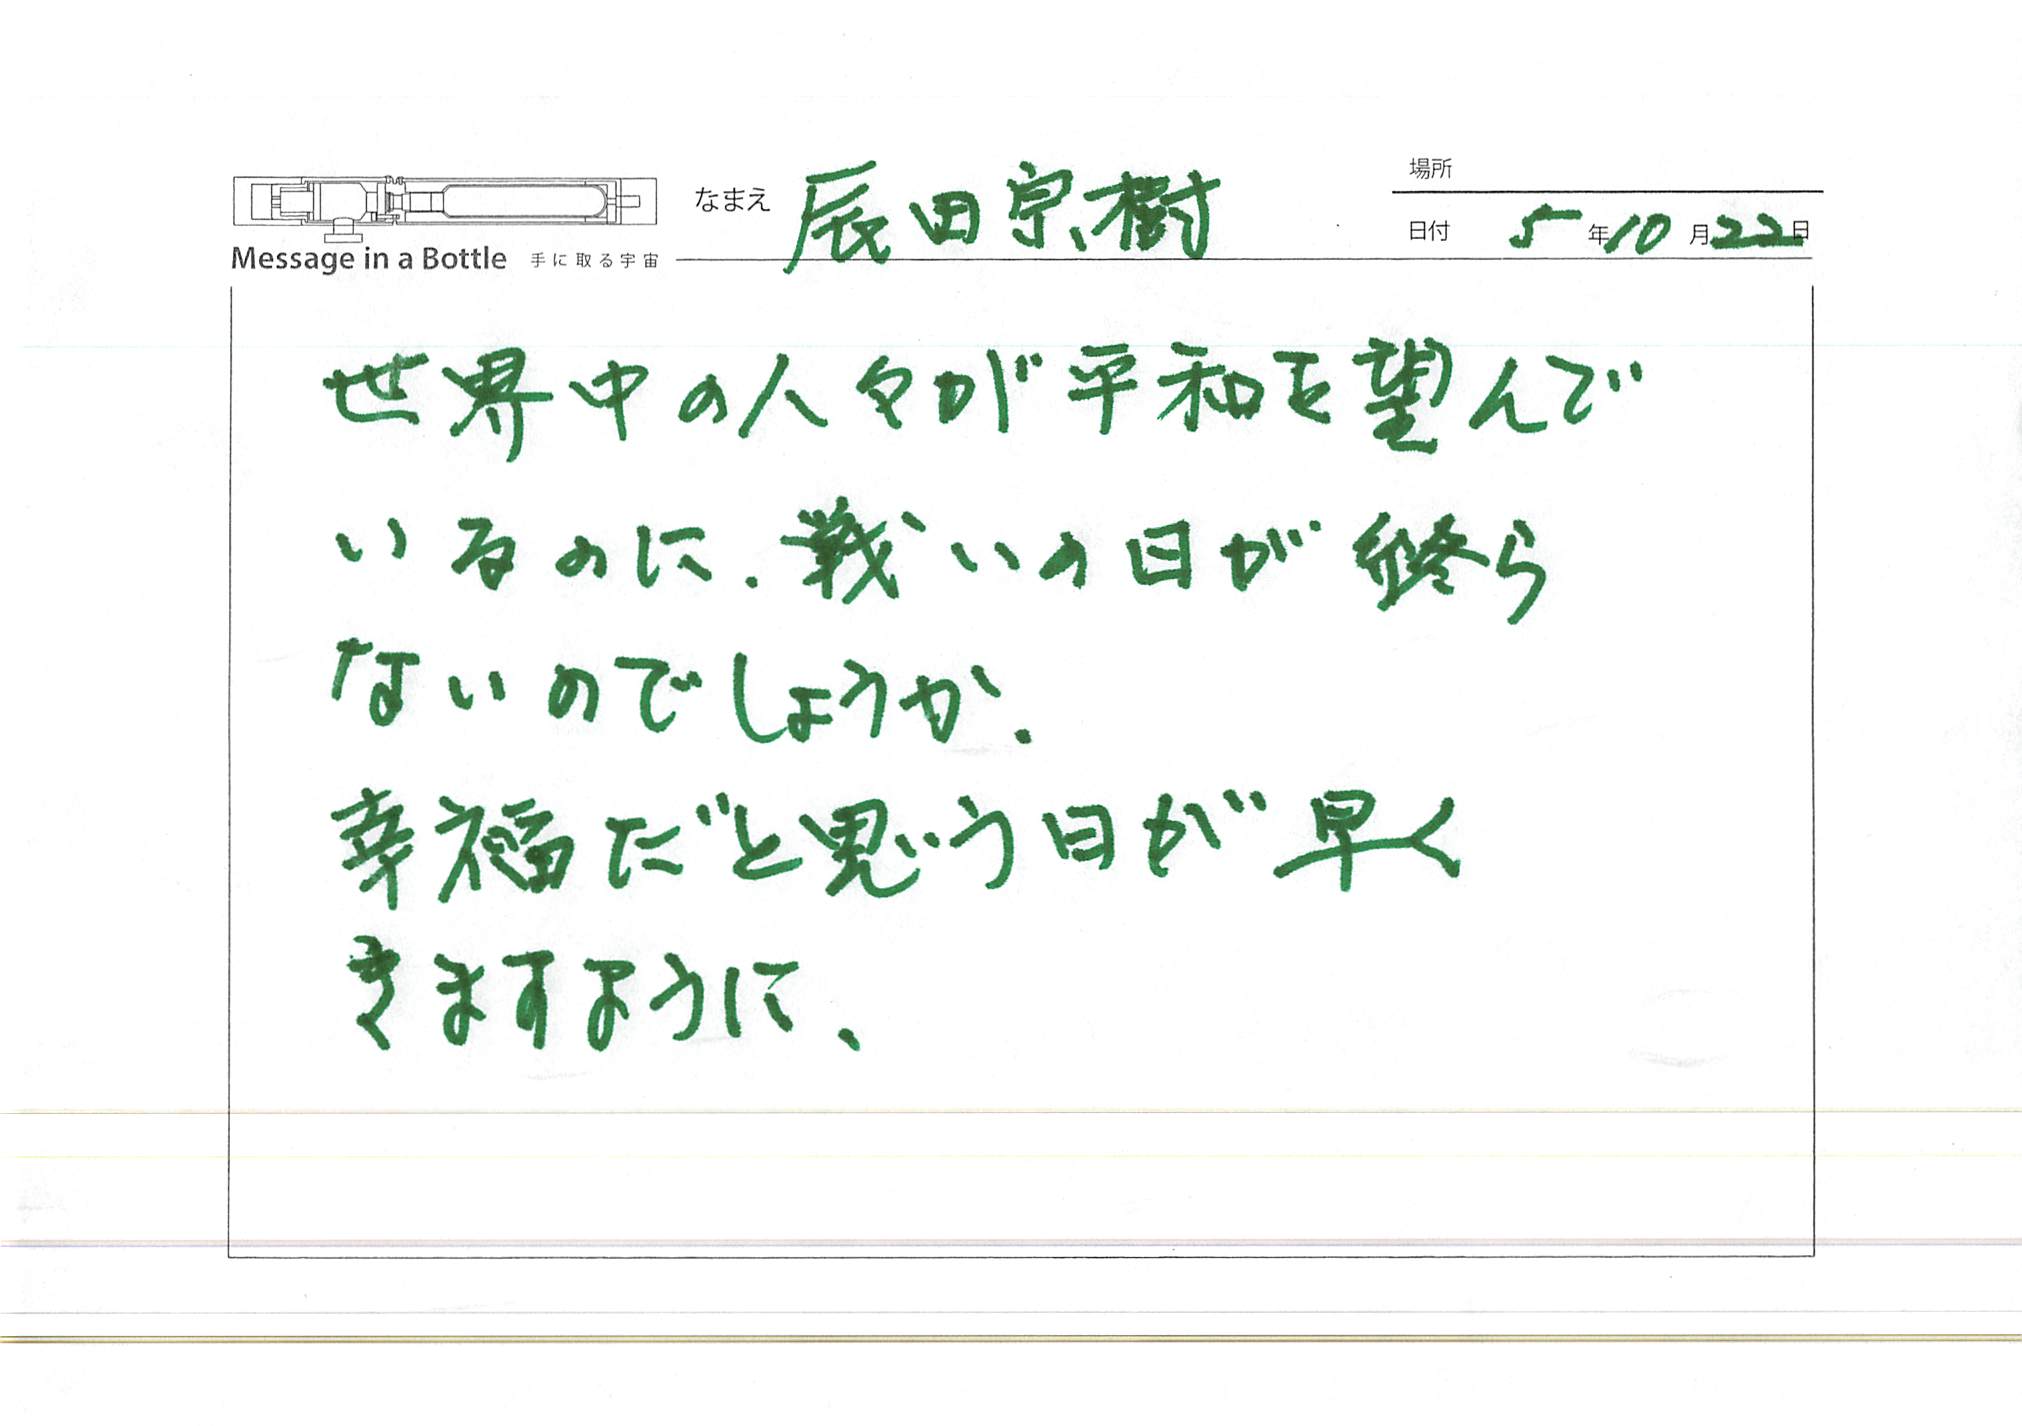 場所
なまえ 辰田宗樹
日付 5年10月22日
Message in a Bottle 手に取る宇宙
世界中の人々が平和を望んで
いるのに、戦いの日が終ら
ないのでしょうか。
幸福だと思う日が早く
きますように、